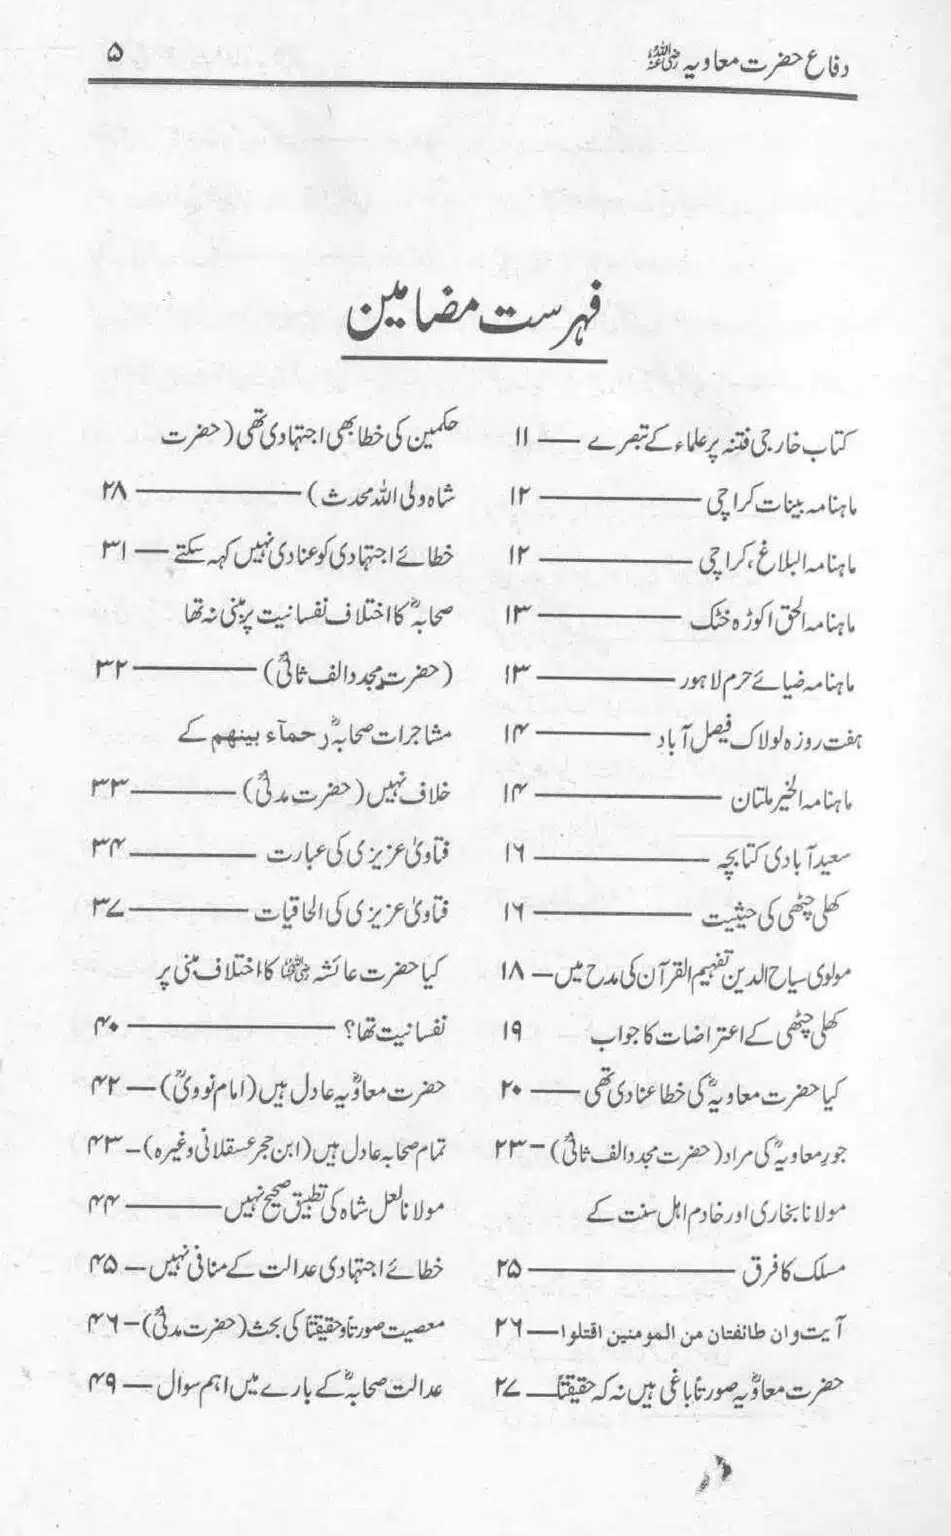 دفاع حضرت معاویہ رضی اللہ عنہ
۵
فہرست مضامین
کتاب خارجی فتنہ پر علماء کے تبصرے — ۱۱
ماہنامہ بینات کراچی — ۱۲
ماہنامہ البلاغ، کراچی — ۱۲
ماہنامہ الحق اکوڑہ خٹک — ۱۳
ماہنامہ ضیائے حرم لاہور — ۱۳
ہفت روزہ لولاک فیصل آباد — ۱۴
ماہنامہ الخیر ملتان — ۱۴
سعید آبادی کتابچہ — ۱۶
کھلی چٹھی کی حیثیت — ۱۶
مولوی سیاح الدین تفہیم القرآن کی مدح میں — ۱۸
کھلی چٹھی کے اعتراضات کا جواب ۱۹
کیا حضرت معاویہؓ کی خطا عنادی تھی — ۲۰
جورِ معاویہؓ کی مراد (حضرت مجدد الف ثانیؒ) — ۲۳
مولانا بخاری اور خادم اہل سنت کے
مسلک کا فرق — ۲۵
آیت وان طائفتان من المومنین اقتلوا — ۲۶
حضرت معاویہؓ صورتاً باغی ہیں نہ کہ حقیقتاً — ۲۷
حکمین کی خطا بھی اجتہادی تھی (حضرت
شاہ ولی اللہ محدث) — ۲۸
خطائے اجتہادی کو عنادی نہیں کہہ سکتے — ۳۱
صحابہؓ کا اختلاف نفسانیت پر مبنی نہ تھا
(حضرت مجدد الف ثانیؒ) — ۳۲
مشاجرات صحابہؓ رحمآء بینھم کے
خلاف نہیں (حضرت مدنیؒ) — ۳۳
فتاویٰ عزیزی کی عبارت — ۳۴
فتاویٰ عزیزی کی الحاقیات — ۳۷
کیا حضرت عائشہ رضی اللہ عنہا کا اختلاف مبنی پر
نفسانیت تھا؟ — ۴۰
حضرت معاویہؓ عادل ہیں (امام نوویؒ) — ۴۲
تمام صحابہ عادل ہیں (ابن حجر عسقلانی وغیرہ) — ۴۳
مولانا لعل شاہ کی تطبیق صحیح نہیں — ۴۴
خطائے اجتہادی عدالت کے منافی نہیں — ۴۵
معصیت صورتاً و حقیقتاً کی بحث (حضرت مدنیؒ) — ۴۶
عدالت صحابہؓ کے بارے میں اہم سوال — ۴۹